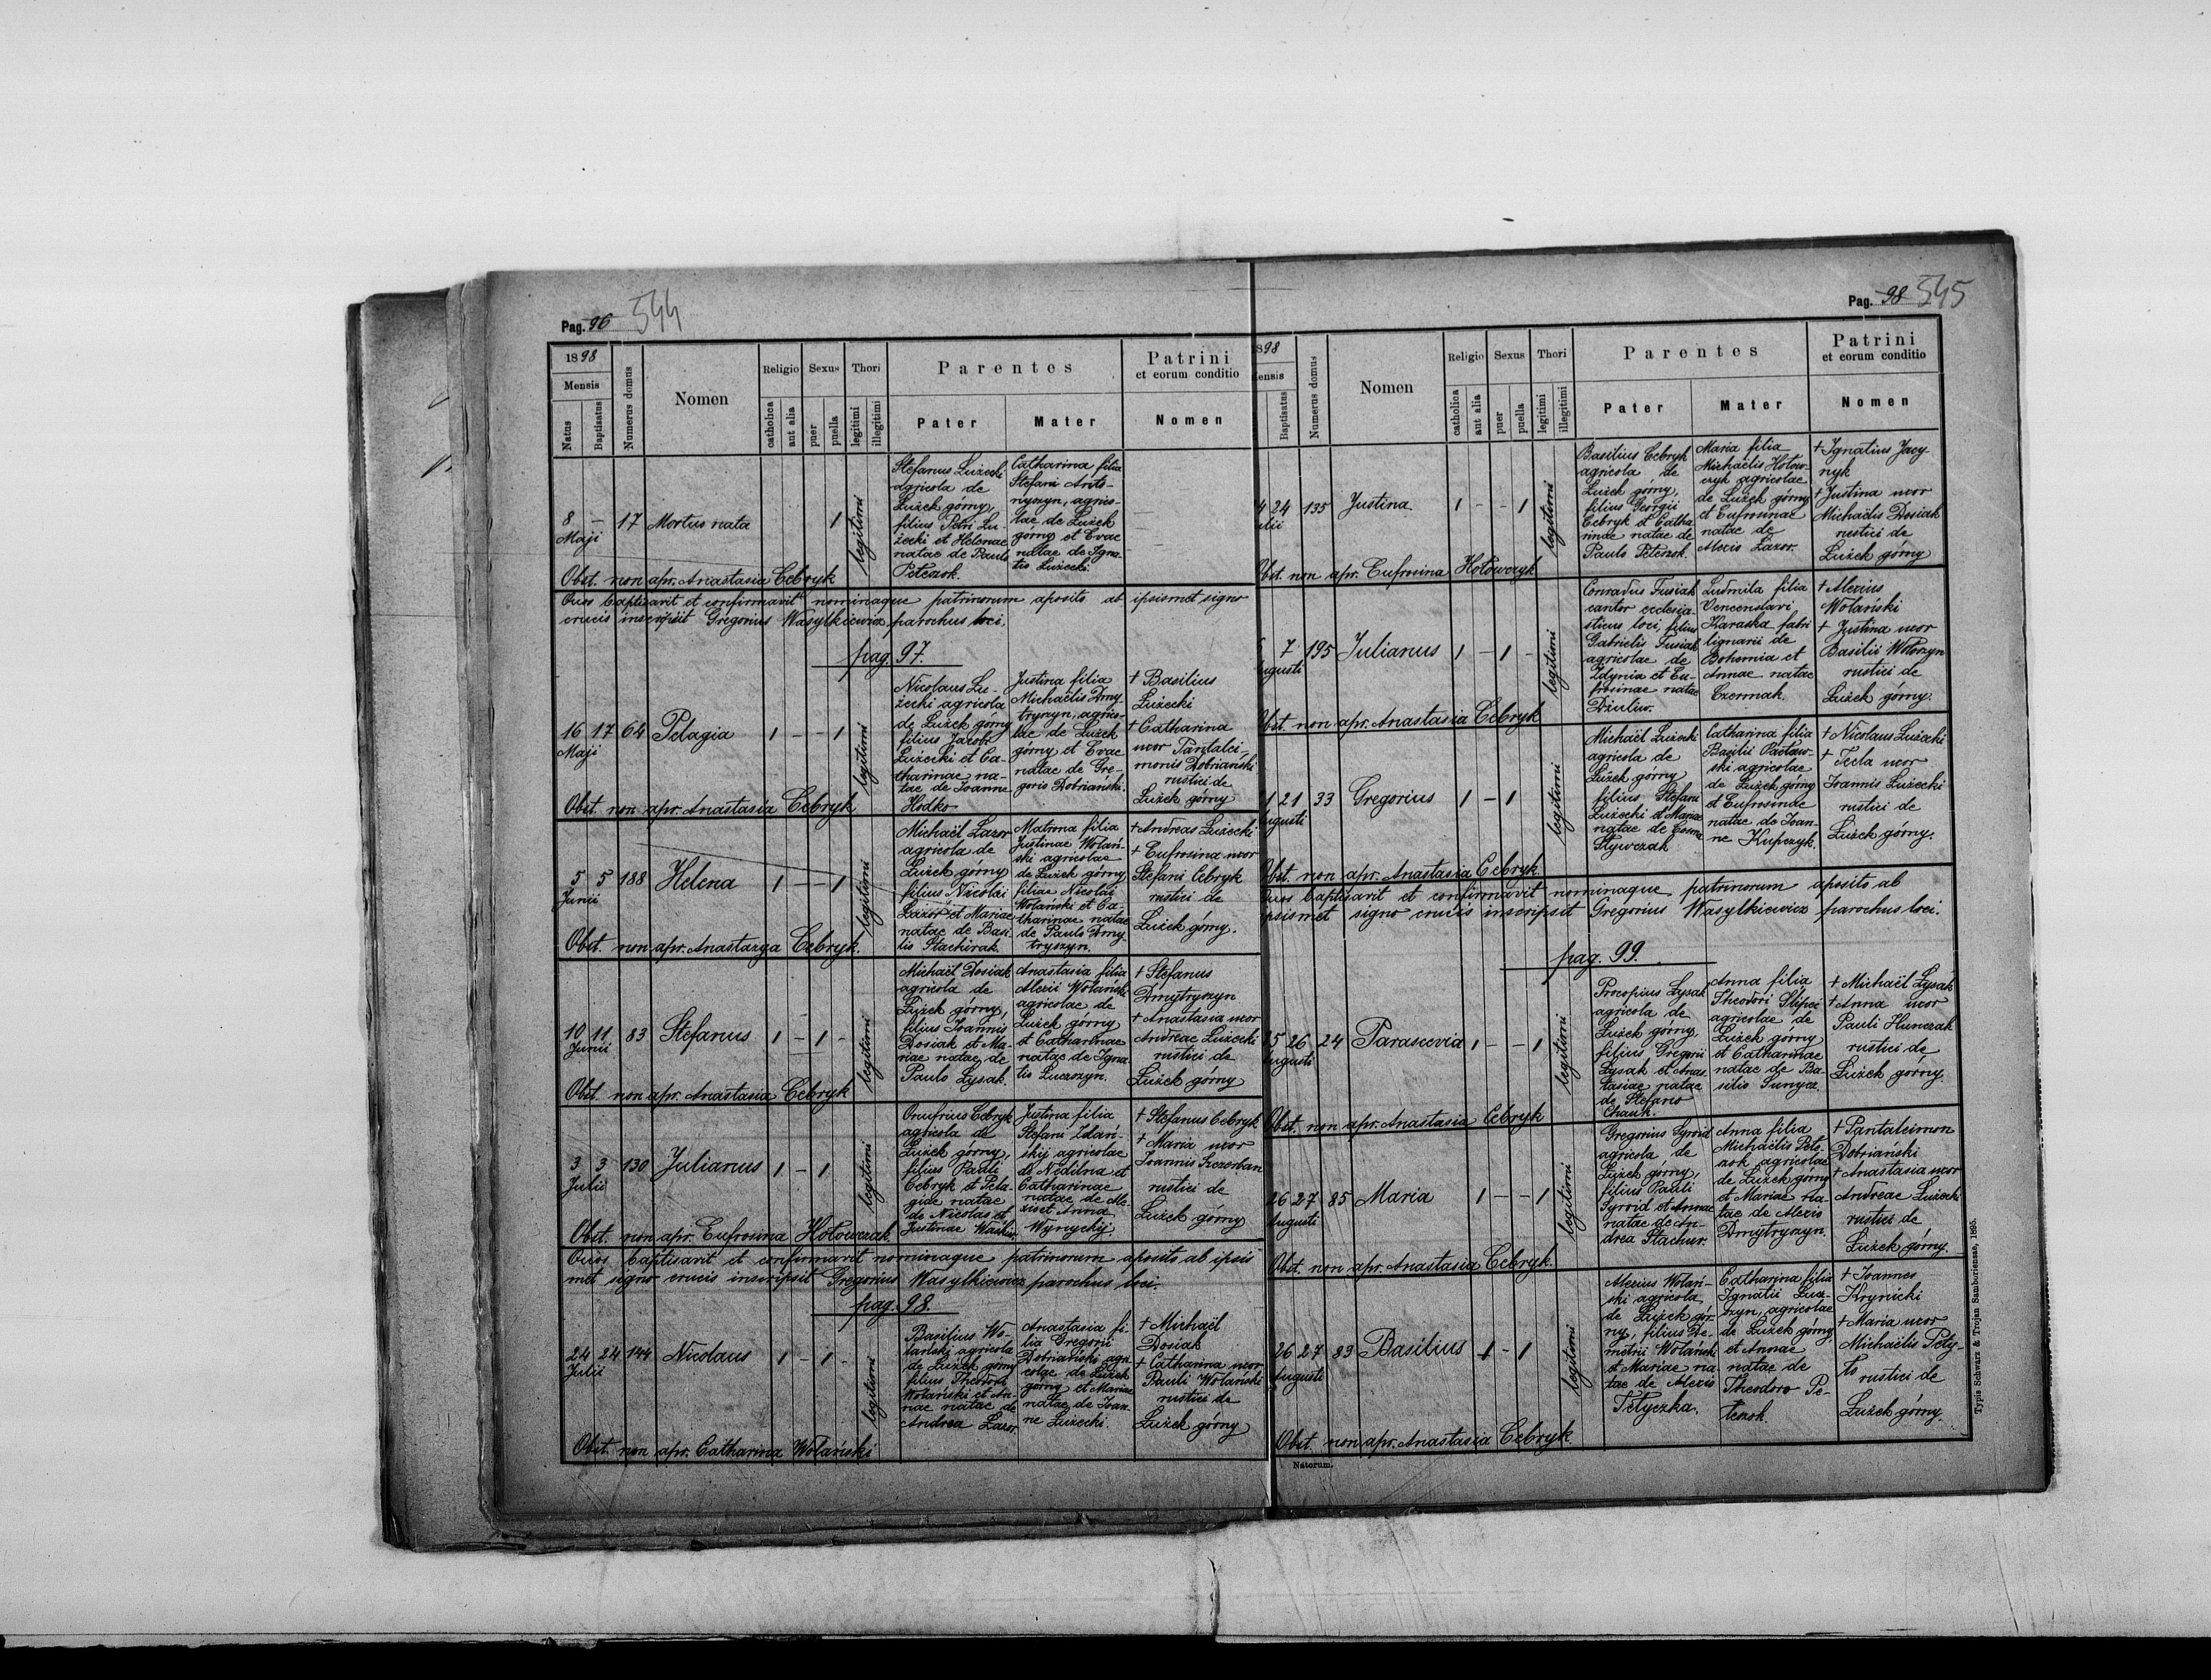 Pag. 96 544
1898
Mensis
Natus
Baptisatus
Numerus domus
Nomen
Religio
catholica
aut alia
Sexus
puer
puella
Thori
legitimi
illegitimi
Parentes
Pater
Mater
Patrini
et eorum conditio
Nomen
8 – 17 Mortua nata 1 legitimi
Maji
Stefanus Łużecki
agricola de
Łużek górny,
filius Petri Łu-
żecki et Helenae
natae de Paulo
Petczok.
Catharina filia
Stefani Anto-
nyszyn, agrico-
lae de Łużek
górny et Evae
natae de Igna-
tio Łużecki.
Obst. non apr. Anastasia Cebryk
Quos baptisavit et confirmavit nominaque patrinorum aposito ab ipsismet signo
crucis inscripsit Gregorius Wasylkiewicz parochus loci.
pag. 97.
16 17 64 Pelagia 1 – – 1 legitimi
Maji
Nicolaus Łu-
żecki agricola
de Łużek górny
filius Jacobi
Łużecki et Ca-
tharinae na-
tae de Joanne
Hodko
Justina filia
Michaëlis Dmy-
tryszyn, agrico-
lae de Łużek
górny et Evae
natae de Gre-
gorio Dobriański.
† Basilius
Łużecki
† Catharina
uxor Pantalei-
monis Dobriański
rustici de
Łużek górny
Obst. non apr. Anastasia Cebryk
5 5 188 Helena 1 – – 1 legitimi
Junii
Michaël Łazor
agricola de
Łużek górny
filius Nicolai
Łazor et Mariae
natae de Basi-
lio Stachirak.
Matrona filia
Justinae Wołań-
ski agricolae
de Łużek górny
filiae Nicolai
Wołański et Ca-
tharinae natae
de Paulo Dmy-
tryszyn.
† Andreas Łużecki
† Eufrosina uxor
Stefani Cebryk
rustici de
Łużek górny.
Obst. non apr. Anastazya Cebryk.
10 11 83 Stefanus 1 – 1 – legitimi
Junii
Michaël Dosiak
agricola de
Łużek górny,
filius Joannis
Dosiak et Ma-
riae natae de
Paulo Łysak.
Anastasia filia
Alexii Wołański
agricolae de
Łużek górny
et Catharinae
natae de Igna-
tio Łuczszyn.
† Stefanus
Dmytryszyn
† Anastasia uxor
Andreae Łużecki
rustici de
Łużek górny
Obst. non apr. Anastasia Cebryk
3 3 130 Julianus 1 – 1 legitimi
Julii
Onufrius Cebryk
agricola de
Łużek górny,
filius Pauli
Cebryk et Pela-
giae natae
de Nicolao et
Justinae Waśkiw.
Justina filia
Stefani Zdań-
skij agricolae
de Nedilna et
Catharinae
natae de Ale-
xio et Anna
Wynyckij.
† Stefanus Cebryk
† Maria uxor
Joannis Szczerban
rustici de
Łużek górny
Obst. non apr. Eufrosina Hołowczak.
Quos baptisavit et confirmavit nominaque patrinorum aposito ab ipsis
met signo crucis inscripsit Gregorius Wasylkiewicz parochus loci.
pag. 98.
24 24 144 Nicolaus 1 – 1 – legitimi
Julii
Basilius Wo-
łański agricola
de Łużek górny
filius Theodori
Wołański et An-
nae natae de
Andrea Łazor.
Anastasia fi-
lia Gregorii
Dobriański agri-
colae de Łużek
górny et Mariae
natae de Joan-
ne Łużecki.
† Michaël
Dosiak
† Catharina uxor
Pauli Wołański
rustici de
Łużek górny
Obst. non apr. Catharina Wołański
Pag. 98 545
898
ensis
Baptisatus
Numerus domus
Nomen
Religio
catholica
aut alia
Sexus
puer
puella
Thori
legitimi
illegitimi
Parentes
Pater
Mater
Patrini
et eorum conditio
Nomen
4 24 135 Justina 1 – – 1 legitimi
ulii
Basilius Cebryk
agricola de
Łużek górny,
filius Georgii
Cebryk et Catha-
rinae natae de
Paulo Petczok.
Maria filia
Michaëlis Hołow-
czyk agricolae
de Łużek górny
et Eufrosinae
natae de
Alexio Łazor.
† Ignatius Jacy-
nyk
† Justina uxor
Michaëlis Dosiak
rustici de
Łużek górny
Obst. non apr. Eufrosina Hołowczyk
7 195 Julianus 1 – 1 – legitimi
ugusti
Conradus Fusiak
cantor ecclesia-
sticus loci, filius
Gabrielis Fusiak
agricolae de
Zdynia et Eu-
frosinae natae
Dziulin.
Ludmila filia
Venceslavi
Karaska fabri
lignarii de
Bohemia et
Annae natae
Czermak.
† Alexius
Wołański
† Justina uxor
Basilii Wołoszyn
rustici de
Łużek górny.
Obst. non apr. Anastasia Cebryk
1 21 33 Gregorius 1 – 1 legitimi
ugusti
Michaël Łużecki
agricola de
Łużek górny
filius Stefani
Łużecki et Mariae
natae de Cosma
Stywczak
Catharina filia
Basilii Pacław-
ski agricolae
de Łużek górny
et Eufrosinae
natae de Joan-
ne Kupczyk.
† Nicolaus Łużecki
† Tecla uxor
Joannis Łużecki
rustici de
Łużek górny.
Obst. non apr. Anastasia Cebryk.
Quos baptisavit et confirmavit nominaque patrinorum aposito ab
ipsismet signo crucis inscripsit Gregorius Wasylkiewicz parochus loci.
pag. 99.
25 26 24 Parascevia 1 – – 1 legitimi
Augusti
Procopius Łysak
agricola de
Łużek górny,
filius Gregorii
Łysak et Anas-
tasiae natae
de Stefano
Anna filia
Theodori Slipeć
agricolae de
Łużek górny
et Catharinae
natae de Ba-
silio Sunycz.
† Michaël Łysak
† Anna uxor
Pauli Hunczak
rustici de
Łużek górny.
Obst. non apr. Anastasia Cebryk
26 27 85 Maria 1 – – 1 legitimi
Augusti
Gregorius Syroid
agricola de
Łużek górny,
filius Pauli
Syroid et Annae
natae de An-
drea Stachur.
Anna filia
Michaëlis Pete-
zok agricolae
de Łużek górny
et Mariae na-
tae de Alexio
Dmytryszyn.
† Pantaleimon
Dobriański
† Anastasia uxor
Andreae Łużecki
rustici de
Łużek górny.
Obst. non apr. Anastasia Cebryk.
26 27 83 Basilius 1 – 1 legitimi
Augusti
Alexius Wołań-
ski agricola
de Łużek gór-
ny, filius De-
metrii Wołański
et Mariae na-
tae de Alexio
Petyczka.
Catharina filia
Ignatii Łucz-
szyn, agricolae
de Łużek górny,
et Annae
natae de
Theodoro Pe-
tczok.
† Joannes
Krynicki
† Maria uxor
Michaëlis Pety-
ło rustici de
Łużek górny.
Obst. non apr. Anastasia Cebryk.
Natorum.
Typis Schwarz & Trojan Samboriense, 1895.